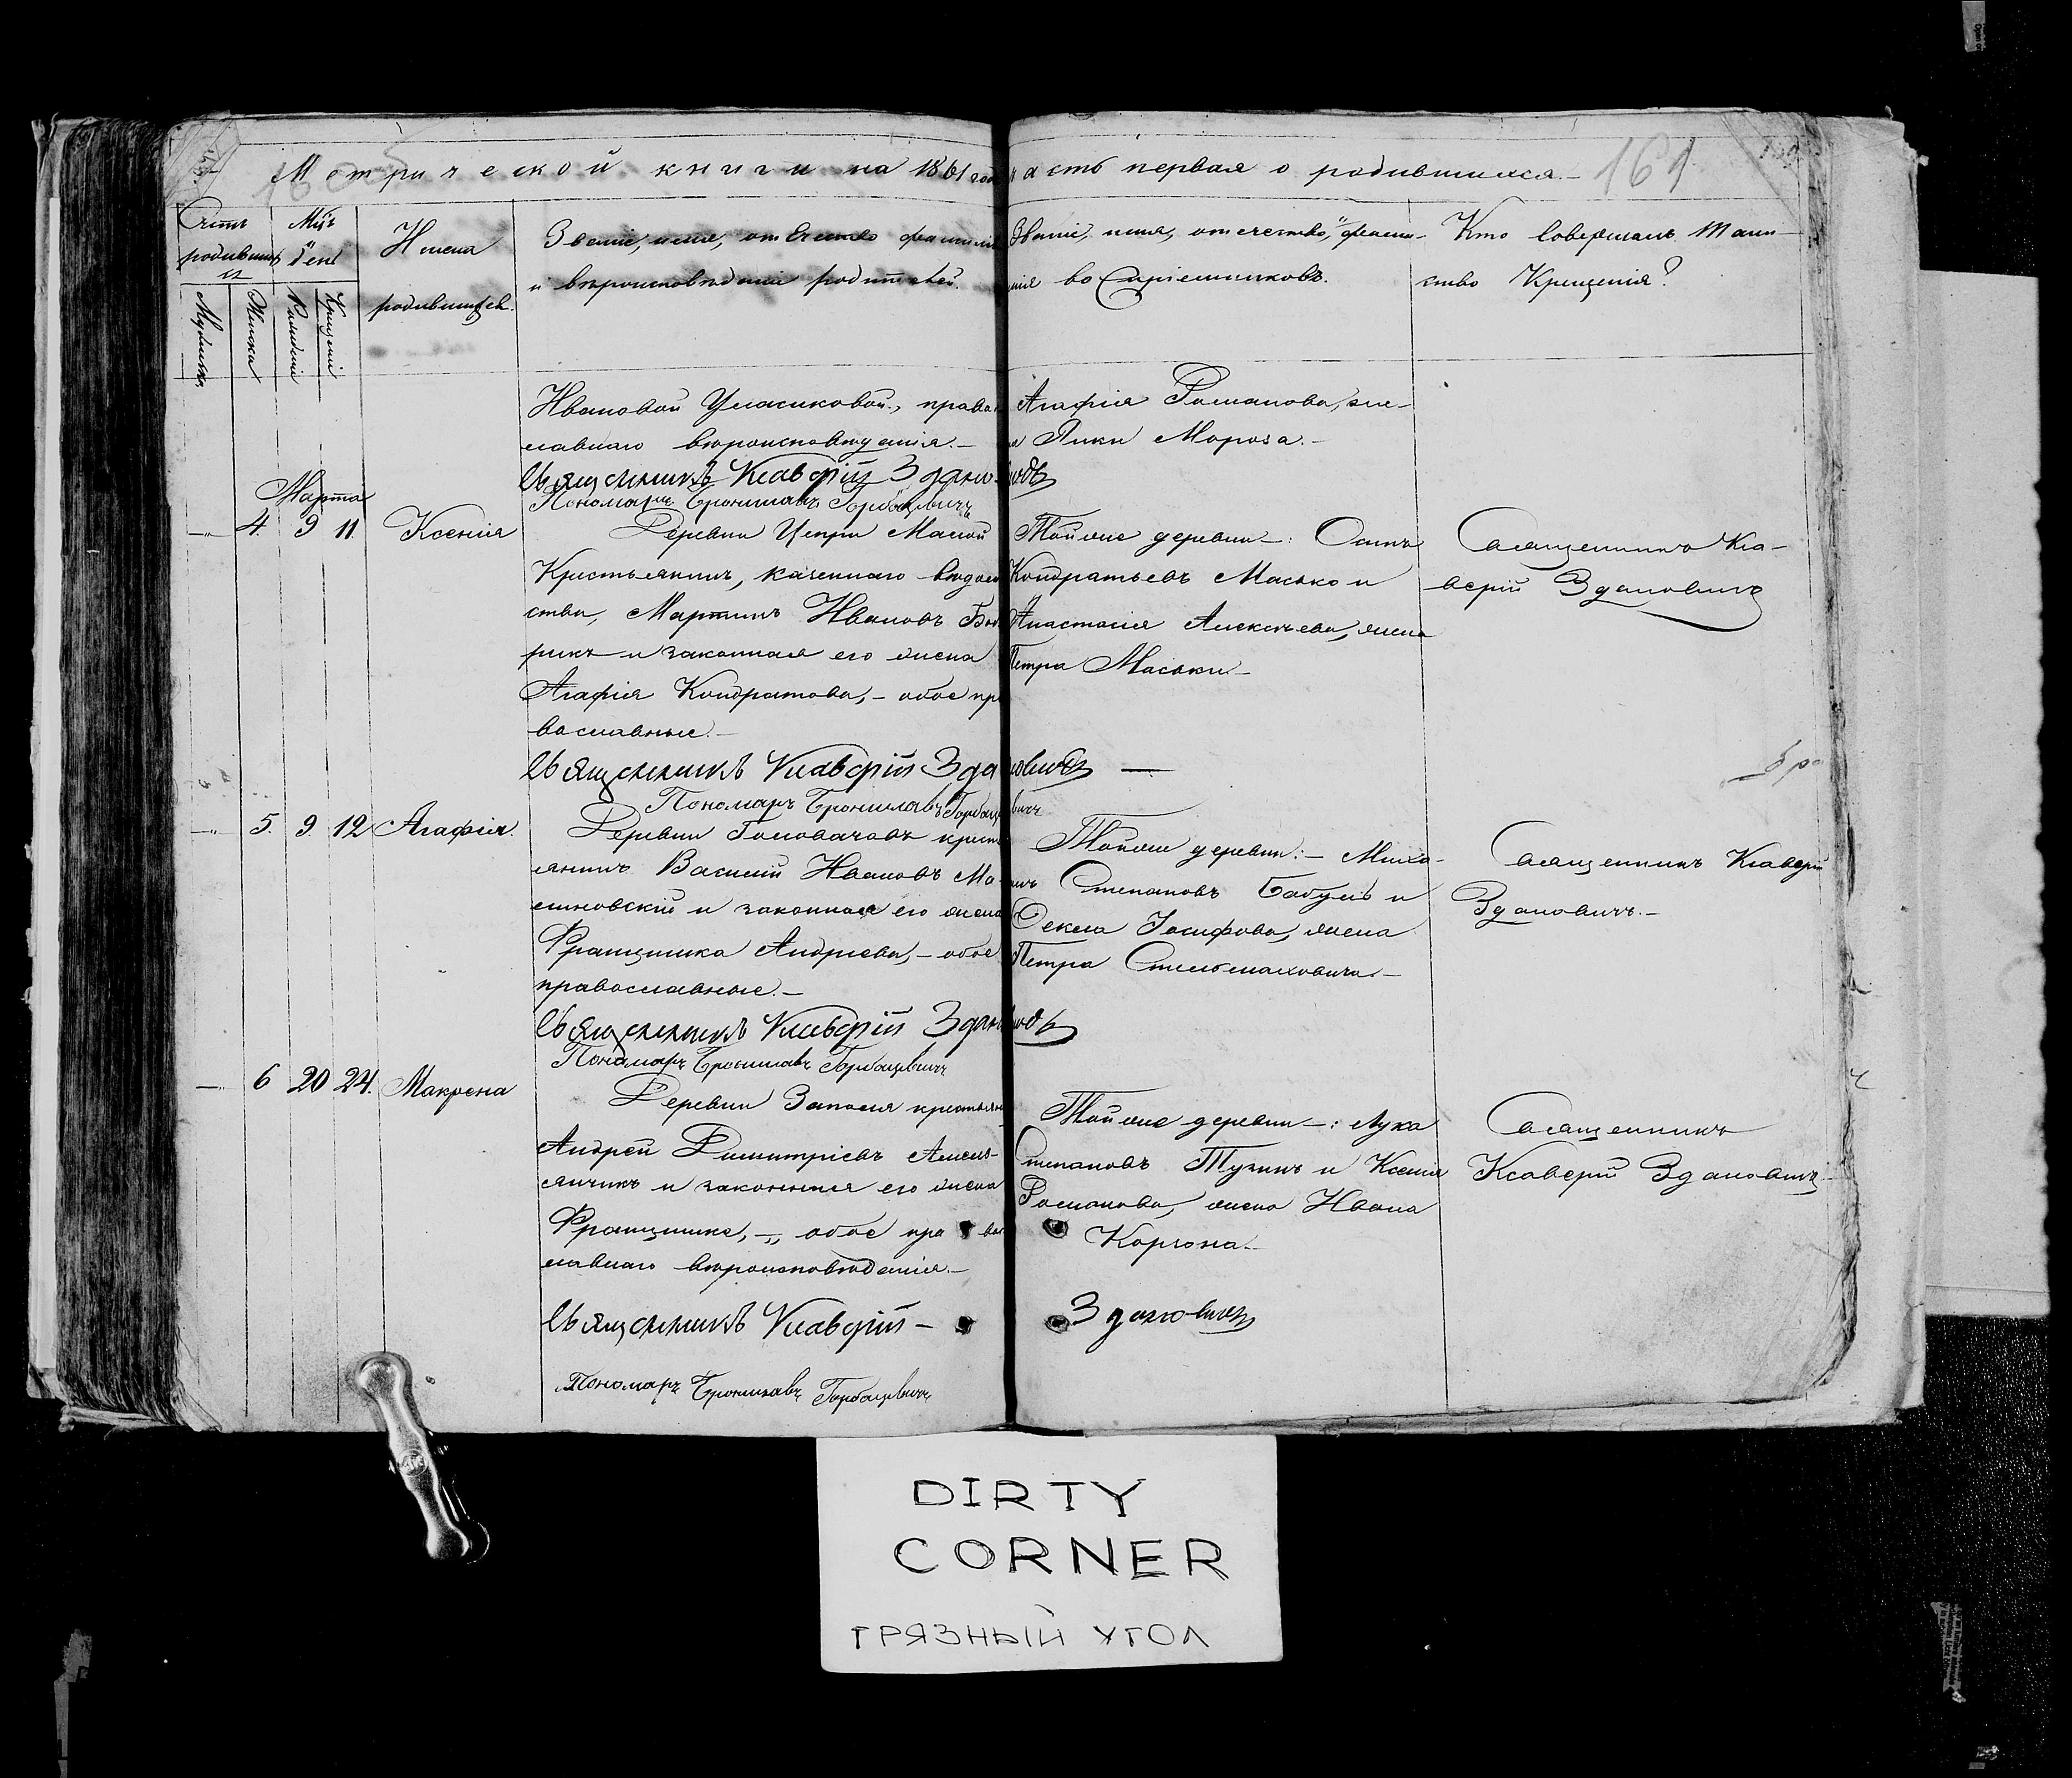 Метрической книги на 1861 год часть первая о родившихся.
161
Счетъ родившихся
Мцъ и день
Имена родившихся.
Званіе, имя, отчество фамилія
и вѣроисповѣданіе родителей.
Званіе, имя, отечество, и фами-
лія воспріемниковъ.
Кто совершалъ Таин-
ство Крещенія?
Мужеска
Женска
Рожденія
Крещенія
Ивановой православнаго вѣроисповѣданія.—
Священникъ Ксаверій Здановичъ
Пономарь Брониславъ Горбацевичъ
Агафія Романова, же-
на Луки Мороза.—
Марта
4. 9 11. Ксенія
Деревни Цепри Малой
Крестьянинъ, казеннаго вѣдом
ства, Мартинъ Ивановъ
и законная его жена
Агафія Кондратова,— обое пра
вославные.—
Священникъ Ксаверій Здановичъ —
Пономарь Брониславъ Горбацевичъ
Тойже деревни—: Осипъ
Кондратьевъ Масько и
Анастасія Алексѣева, жена
Петра Маськи—
Священникъ Кса-
верій Здановичъ
5. 9. 12 Агафія.
Деревни Головачовъ крест
янинъ Василій Ивановъ Ма-
линовскій и законная его жена
Францишка Андреева,— обое
православные.—
Священникъ Ксаверій Здановичъ
Пономарь Брониславъ Горбацевичъ
Тойже деревни:— Миха-
илъ Степановъ Бабуль и
Фекла Іосифова, жена
Петра Стельмаховича.—
Священникъ Ксаверій
Здановичъ.—
6 20 24. Макрена
Деревни Заполя крестьян
Андрей Димитріевъ Амель-
янчикъ и законная его жена
Францишка,—„ обое право
славнаго вѣроисповѣданія.—
Священникъ Ксаверій — Здановичъ
Пономарь Брониславъ Горбацевичъ
Тойже деревни—: Лука
Степановъ и Ксенія
Романова, жена Ивана
Корзона.—
Священникъ
Ксаверій Здановичъ.
DIRTY
CORNER
ГРЯЗНЫЙ УГОЛ